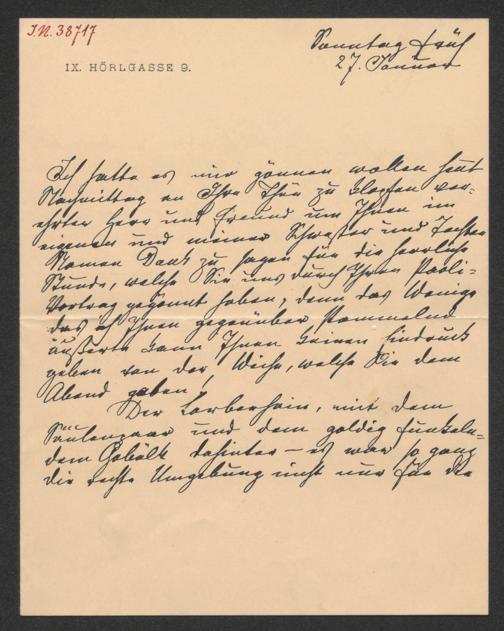 I.N. 38717
Sonntag früh
27. Januar
IX. HÖRLGASSE 9.
Ich hatte es mir gönnen wollen heut
Nachmittag an Ihre Thür zu klopfen ver-
ehrter Herr und Freund um Ihnen im
eigenen und meiner Schwester und Tochter
Namen Dank zu sagen für die herrliche
Stunde, welche Sie uns durch Ihren Paoli-
Vortrag gegönnt haben, denn das Wenige
das ich Ihnen gegenüber stammelnd
äußerte kann Ihnen keinen Eindruck
geben von der Weihe, welche Sie dem
Abend gaben!
Der Lorberhain, mit dem
Säulenpaar und dem goldig funkeln-
dem Gebälk dahinter – es war so ganz
die rechte Umgebung nicht nur für die